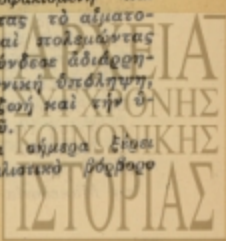 τας τὸ αἷματο-
αὶ πολεμώντας
ύνδεσε ἀδιάρρη-
νικὴ ὑπόληψη,
ζωὴ καὶ τὴν ὑ-
σήμερα ξέρει
λιστικὸ βόρβορο
ΑΡΧΕΙΑ
ΣΥΓΧΡΟΝΗΣ
ΚΟΙΝΩΝΙΚΗΣ
ΙΣΤΟΡΙΑΣ